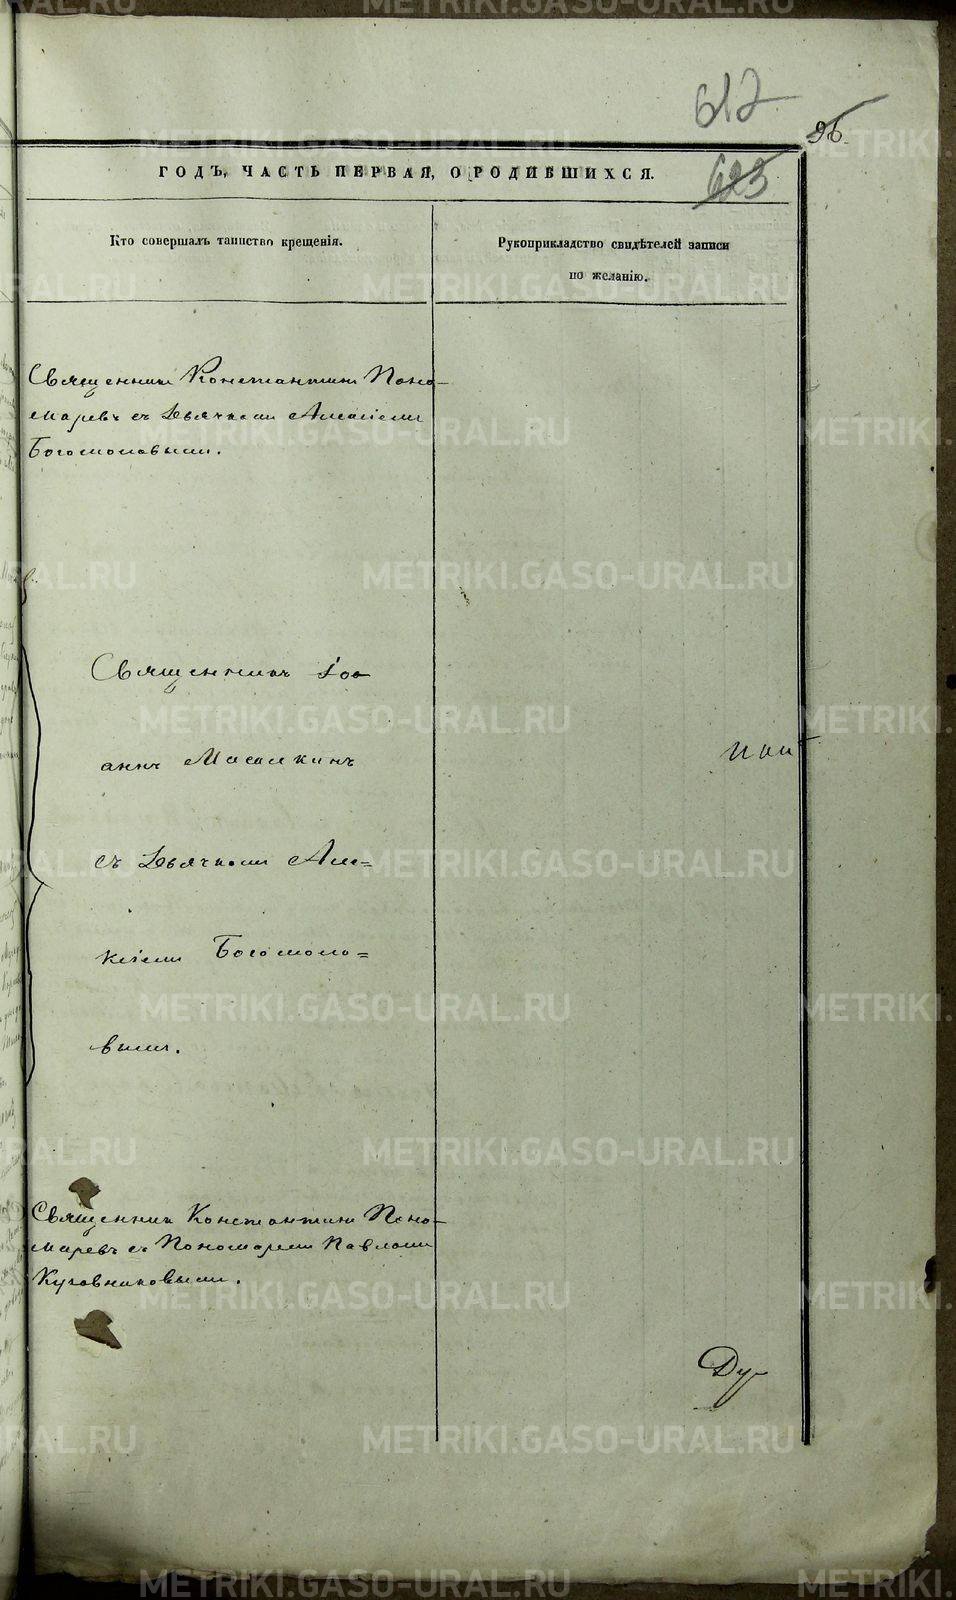 612
96.
ГОДЪ, ЧАСТЬ ПЕРВАЯ, О РОДИВШИХСЯ.
623
Кто совершалъ таинство крещенія.
Рукоприкладство свидѣтелей записи
по желанію.
Священникъ Константинъ Поно-
маревъ съ Дьячкомъ Алексіемъ
Богомоловымъ.
Священникъ Іоа
аннъ
съ Дьячкомъ Але=
ксіемъ Богомоло=
вымъ.
Священникъ Константинъ Поно-
маревъ съ Пономаремъ Павломъ
Кузовниковымъ.
Ду
METRIKI.GASO-URAL.RU